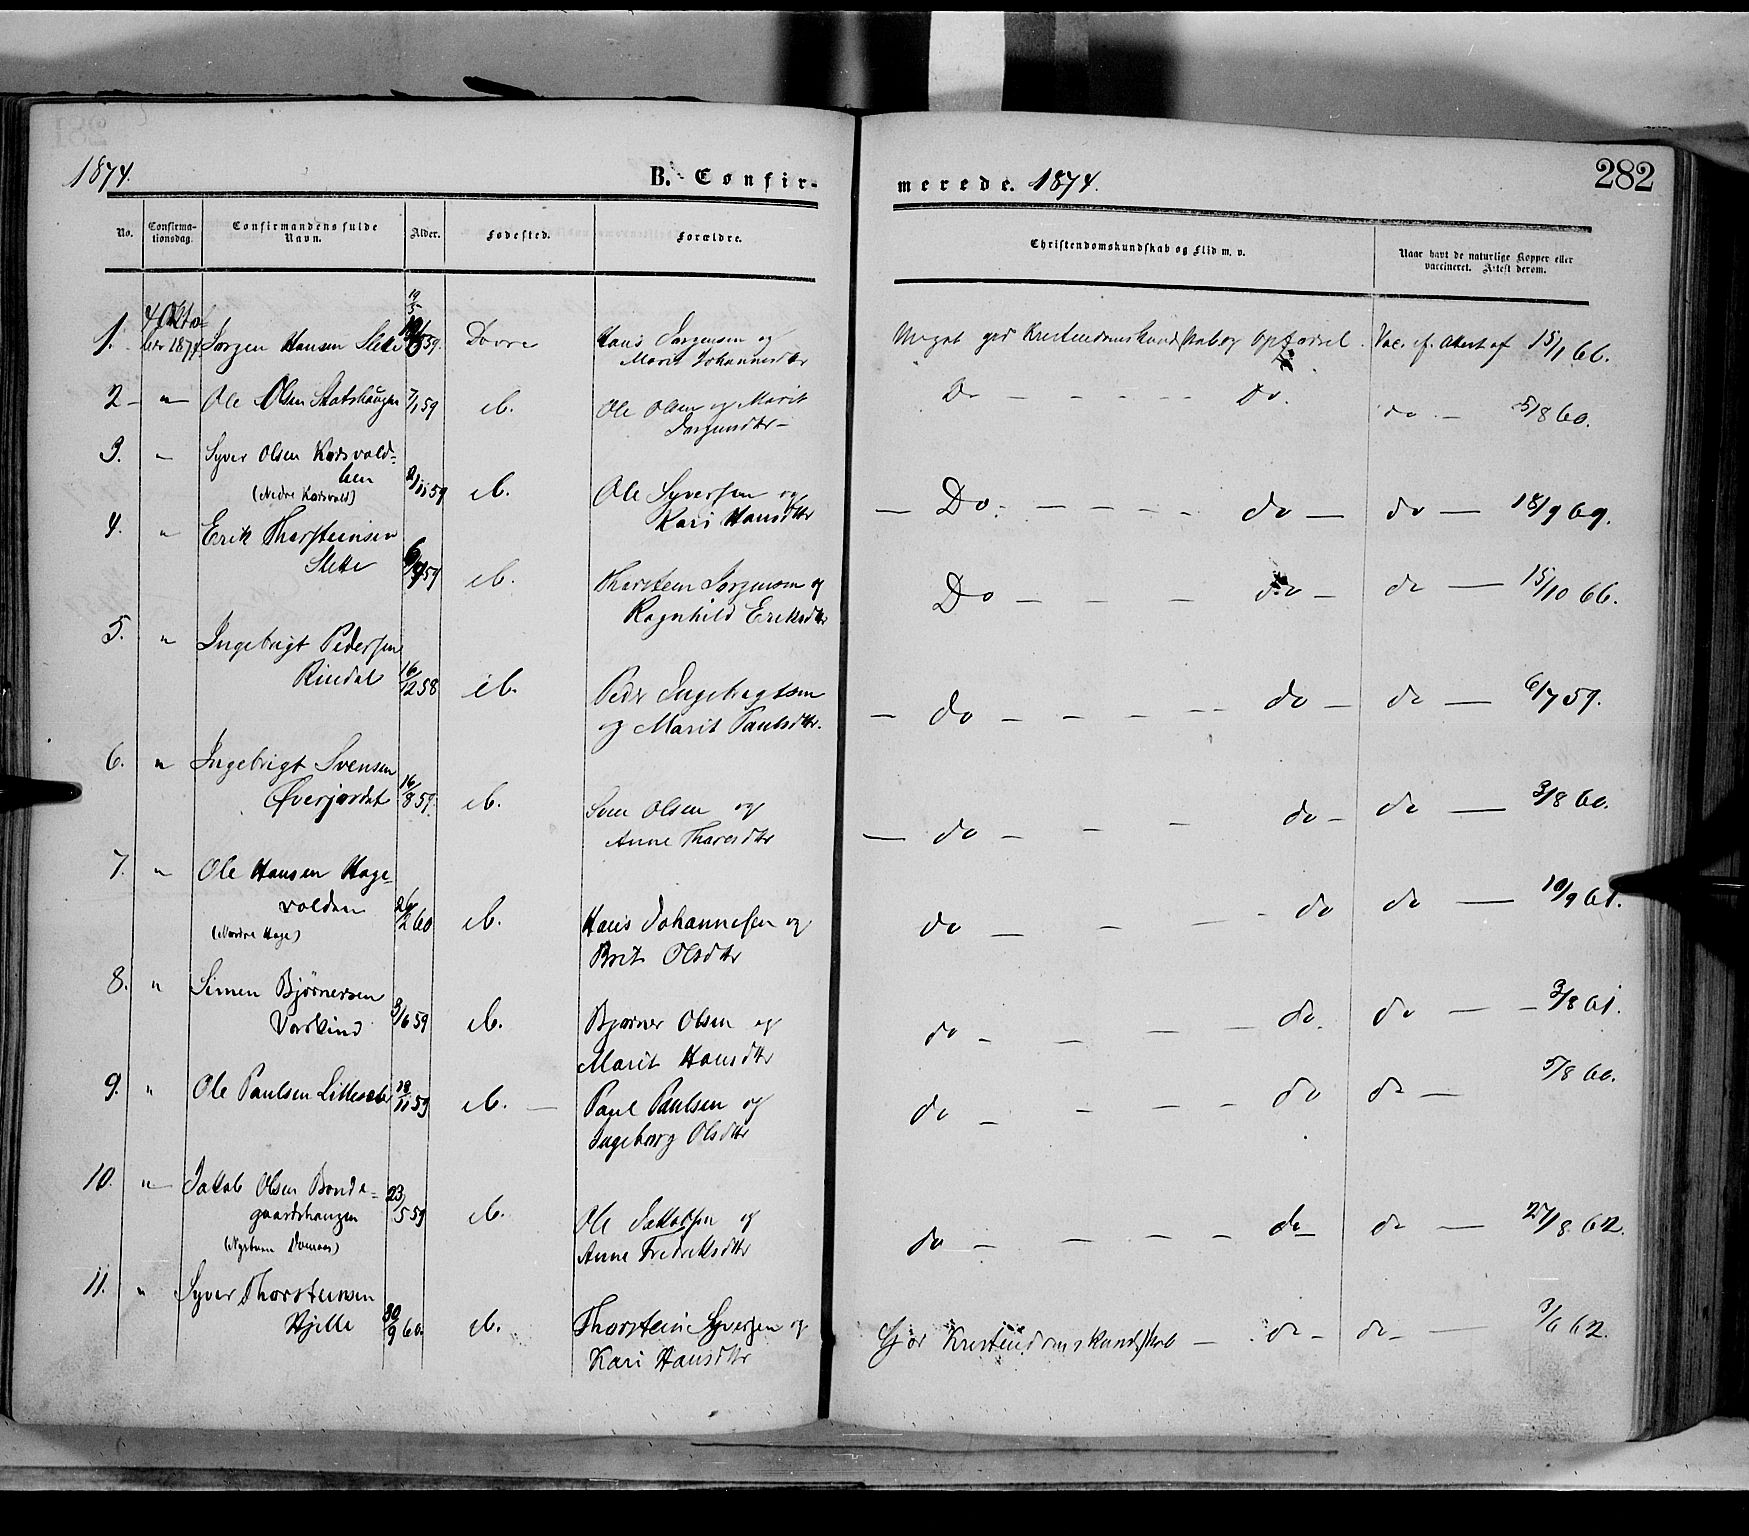 282
1874.
B. Confir-
merede. 1874.
No.
Confirma-
tionsdag.
Confirmandens fulde
Navn.
Alder.
Fødested.
Forældre.
Christendomskundskab og Flid m. v.
Naar havt de naturlige Kopper eller
vaccineret. Attest derom.
1. 4 Octo-
ber 1874 Jørgen Hansen Slette 59. Dovre Hans Jørgensen og
Marit Johannesdtr
Meget god Kristendomskundskab og Opførsel. Vac. ef. Attest af 15/1 66.
2 — " — Ole Olsen 7/1 59 ib. Ole Olsen og Marit
Jørgensdtr —
Do — — — — Do. do — 5/8 60.
3. " Syver Olsen Korsvold-
(Nedre Korsvold) 2/11 59 ib. Ole Syversen og
Kari Hansdtr
— Do. — — — — do — do — 18/9 69.
4. " Erik Thorsteinsen
Slette 6/9 59 ib. Thorstein Jørgensen og
Ragnhild Eriksdtr
Do — — — do — do — 15/10 66.
5. " Ingebrigt Pedersen
Rindal 16/12 58 ib. Peder Ingebrigtsen
og Marit Paulsdtr.
— do — — — — do — do — 6/7 59.
6. " Ingebrigt Svensen
Øverjordet 16/8 59. ib. Sven Olsen og
Anne Thoresdtr
— do — — — do — do — 3/8 60.
7. " Ole Hansen Hage-
volden
(Nordre Hage) 26/2 60 ib. Hans Johannesen og
Brit Olsdtr
do — — — - do do — 10/9 61.
8. " Simen Bjørnersen
Vorkind 3/6 59 ib. Bjørner Olsen og
Marit Hansdtr
do — — — — do. do — — 3/8 61.
9. " Ole Paulsen 59 ib. — Paul Paulsen og
Ingeborg Olsdtr
do — — — — do do — 5/8 60.
10. " — Jakob Olsen Bonde-
gaardshaugen 23/5 59 ib. Ole Jakobsen og
Anne Fredriksdtr
do — — — — do — do — 27/8 62.
11. " Syver Thorsteinsen
Hjelle 30/9 60. ib. Thorstein Syversen og
Kari Hansdtr
Kristendomskundskab — do — do — 62.